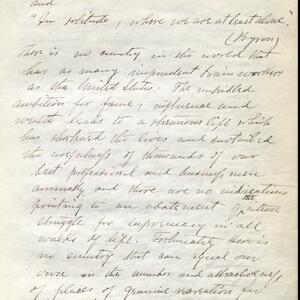 and
"In solitude, where we are at least alone."
(Byron)
There is no country in the world that
has as many imprudent brain workers
as the United States. The unbridled
ambition for fame, influence and
wealth leads to a strenuous life which
has shortened the lives and curtailed
the usefulness of thousands of our
best professional and business men
annually and there are no indications
pointing to an abatement of the future
struggle for supremacy in all
walks of life. Fortunately there is
no country that can equal our
own in the number and attractiveness
of places of genuine recreation for